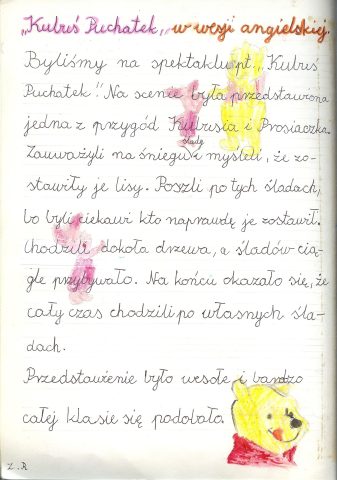 „Kubuś Puchatek„ w wesji angielskiej.
Byliśmy na spektaklu pt. „Kubuś
Puchatek". Na scenie była przedstawiona
jedna z przygód Kubusia i Prosiaczka.
ślady
Zauważyli na śniegu i myśleli, że zo-
stawiły je lisy. Poszli po tych śladach,
bo byli ciekawi kto naprawdę je zostawił.
Chodzili dokoła drzewa, a śladów cią-
gle przybywało. Na końcu okazało się, że
cały czas chodzili po własnych śla-
dach.
Przedstawienie było wesołe i bardzo
całej klasie się podobało.
Z.R